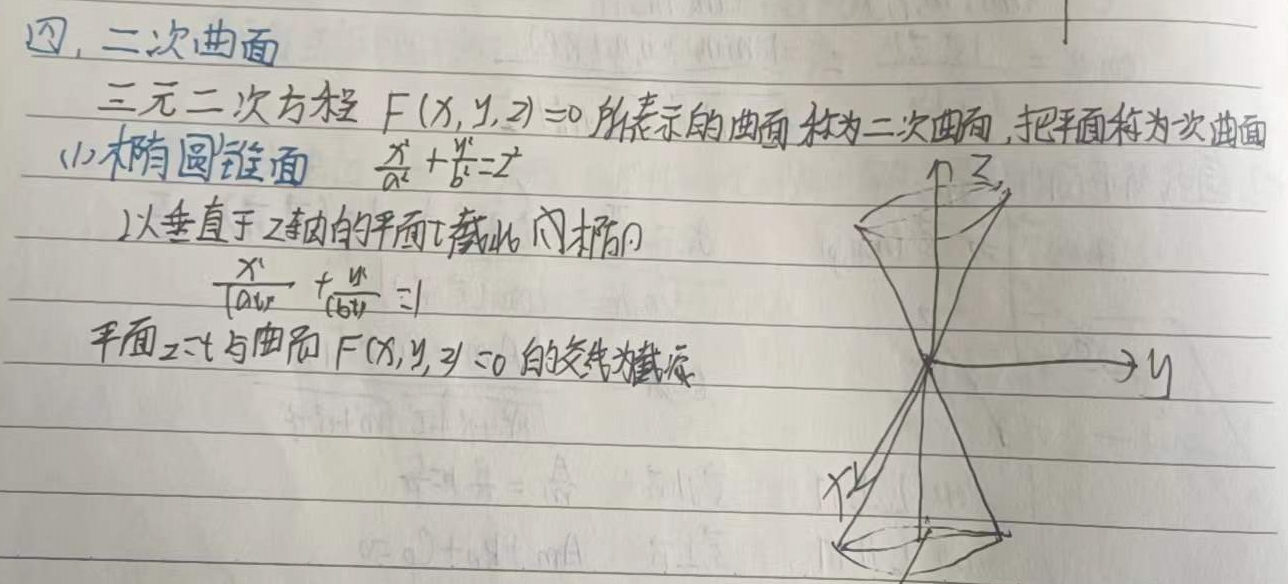 四、二次曲面
三元二次方程 F(x,y,z)=0 所表示的曲面称为二次曲面,把平面称为一次曲面
(1)椭圆锥面 x²/a² + y²/b² = z²
以垂直于z轴的平面t截此 椭
x²/(at)² + y²/(bt)² = 1
平面z=t与曲面 F(x,y,z)=0 的交线为截痕
z
y
x